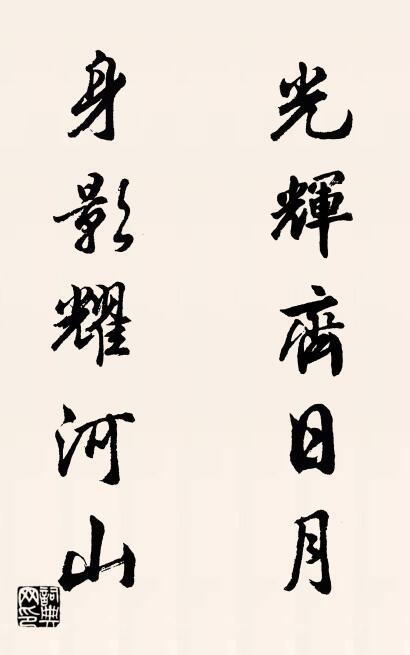 光輝齊日月
身影耀河山
詞典
网印